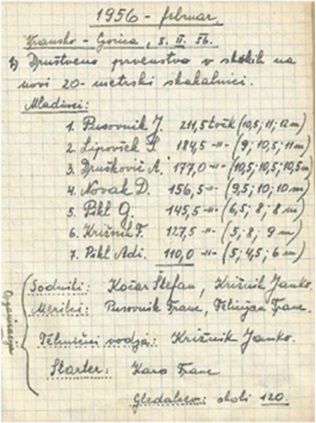 1956 - februar.
Vransko - Gorica, 5. II. 56.
1) Društveno prvenstvo v skokih na
novi 20-metrski skakalnici.
Mladinci:
1. Pusovnik J. 211,5 točk (10,5; 11; 12 m)
2. Lipovšek S 184,5 -"- (9; 10,5; 11 m)
3. Druškovič A. 177,0 -"- (10,5; 10,5; 10,5 m)
4. Novak D. 156,5 -"- (9,5; 10; 10 m)
5. Pikl G. 145,5 -"- (6,5; 8; 8 m)
6. Križnik F. 127,5 -"- (5; 8; 9 m)
7. Pikl Adi. 110,0 -"- (5; 4,5; 6 m)
Organizacija
Sodniki: Kočar Štefan, Križnik Janko.
Merilci: Pusovnik Franc, Felicijan Franc.
Tehnični vodja: Križnik Janko.
Starter: Karo Franc
Gledalcev: okoli 120.